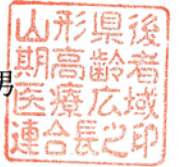 山形県後
期高齢者
男
医療広域
連合長之印